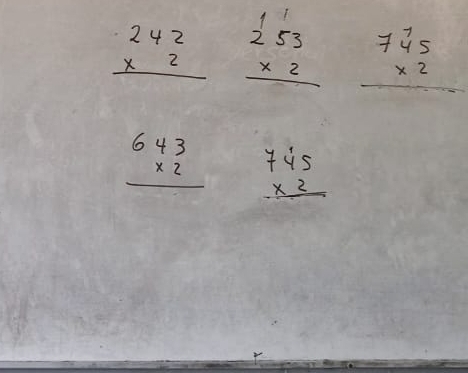 1 1 1
242 253 745
x 2 x 2 x 2
1
643 745
x 2 x 2